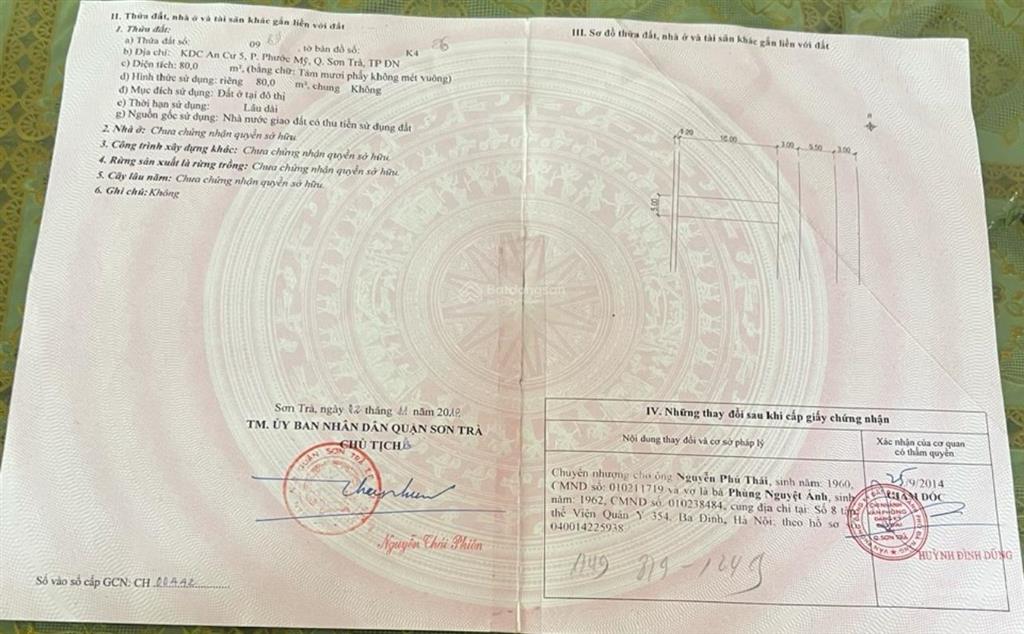 II. Thửa đất, nhà ở và tài sản khác gắn liền với đất
1. Thửa đất:
a) Thửa đất số: 09 , tờ bản đồ số: K4
b) Địa chỉ: KDC An Cư 5, P. Phước Mỹ, Q. Sơn Trà, TP ĐN
c) Diện tích: 80,0 m², (bằng chữ: Tám mươi phẩy không mét vuông)
d) Hình thức sử dụng: riêng 80,0 m², chung Không
đ) Mục đích sử dụng: Đất ở tại đô thị
e) Thời hạn sử dụng: Lâu dài
g) Nguồn gốc sử dụng: Nhà nước giao đất có thu tiền sử dụng đất
2. Nhà ở: Chưa chứng nhận quyền sở hữu
3. Công trình xây dựng khác: Chưa chứng nhận quyền sở hữu.
4. Rừng sản xuất là rừng trồng: Chưa chứng nhận quyền sở hữu.
5. Cây lâu năm: Chưa chứng nhận quyền sở hữu.
6. Ghi chú: Không
Sơn Trà, ngày tháng năm
TM. ỦY BAN NHÂN DÂN QUẬN SƠN TRÀ
CHỦ TỊCH
Nguyễn Thái Phiên
Số vào sổ cấp GCN: CH 00442
III. Sơ đồ thửa đất, nhà ở và tài sản khác gắn liền với đất
3.00 5.50 3.00
5.00
Batdongsan
IV. Những thay đổi sau khi cấp giấy chứng nhận
Nội dung thay đổi và cơ sở pháp lý
Xác nhận của cơ quan
có thẩm quyền
Chuyển nhượng cho ông Nguyễn Phú Thái, sinh năm: 1960,
CMND số: 010211719 và vợ là bà Phùng Nguyệt Ánh, sinh
năm: 1962, CMND số: 010238484, cùng địa chỉ tại: Số 8
thể Viện Quân Y 354, Ba Đình, Hà Nội; theo hồ sơ
040014225938
25/9/2014
GIÁM ĐỐC
CHI NHÁNH
VĂN PHÒNG
Q. SƠN TRÀ
HUỲNH ĐÌNH DŨNG